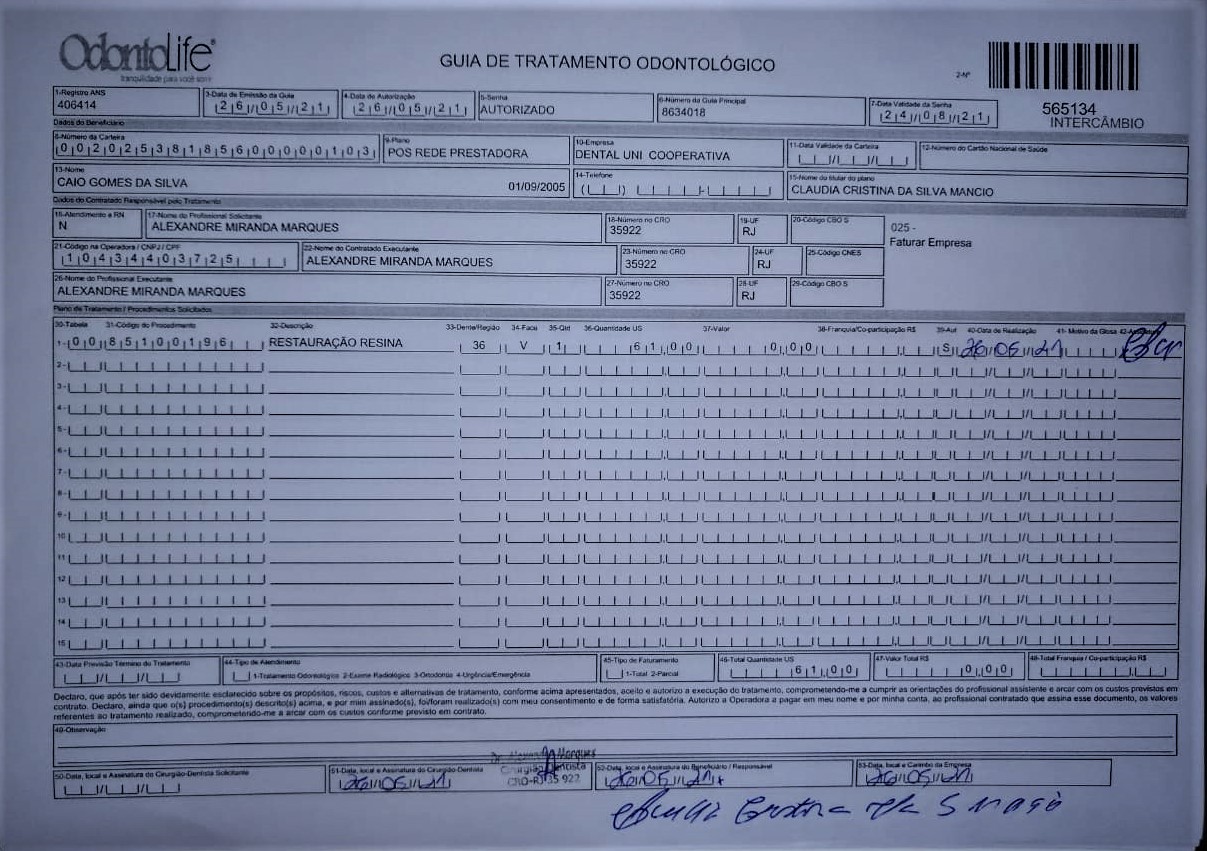 OdontoLife®
tranquilidade para você sorrir
GUIA DE TRATAMENTO ODONTOLÓGICO
2-Nº
565134
INTERCÂMBIO
1-Registro ANS
406414
3-Data de Emissão da Guia
26/05/21
4-Data de Autorização
26/05/21
5-Senha
AUTORIZADO
6-Número da Guia Principal
8634018
7-Data Validade da Senha
24/08/21
Dados do Beneficiário
8-Número da Carteira
00202538185600000103
9-Plano
POS REDE PRESTADORA
10-Empresa
DENTAL UNI COOPERATIVA
11-Data Validade da Carteira
12-Número do Cartão Nacional de Saúde
13-Nome
CAIO GOMES DA SILVA 01/09/2005
14-Telefone
15-Nome do titular do plano
CLAUDIA CRISTINA DA SILVA MANCIO
Dados do Contratado Responsável pelo Tratamento
16-Atendimento a RN
N
17-Nome do Profissional Solicitante
ALEXANDRE MIRANDA MARQUES
18-Número no CRO
35922
19-UF
RJ
20-Código CBO S
025 -
Faturar Empresa
21-Código na Operadora / CNPJ / CPF
10434403725
22-Nome do Contratado Executante
ALEXANDRE MIRANDA MARQUES
23-Número no CRO
35922
24-UF
RJ
25-Código CNES
26-Nome do Profissional Executante
ALEXANDRE MIRANDA MARQUES
27-Número no CRO
35922
28-UF
RJ
29-Código CBO S
Plano de Tratamento / Procedimentos Solicitados
30-Tabela 31-Código do Procedimento 32-Descrição 33-Dente/Região 34-Face 35-Qtd 36-Quantidade US 37-Valor 38-Franquia/Co-participação R$ 39-Aut 40-Data de Realização 41- Motivo da Glosa
1- 00 85100196 RESTAURAÇÃO RESINA 36 V 1 61,00 0,00 S 26/05/21
2-
3-
4-
5-
6-
7-
8-
9-
10
11
12
13
14
15
43-Data Previsão Término do Tratamento
44-Tipo de Atendimento
1-Tratamento Odontológico 2-Exame Radiológico 3-Ortodontia 4-Urgência/Emergência
45-Tipo de Faturamento
1-Total 2-Parcial
46-Total Quantidade US
61,00
47-Valor Total R$
0,00
48-Total Franquia / Co-participação R$
Declaro, que após ter sido devidamente esclarecido sobre os propósitos, riscos, custos e alternativas de tratamento, conforme acima apresentados, aceito e autorizo a execução do tratamento, comprometendo-me a cumprir as orientações do profissional assistente e arcar com os custos previstos em
contrato. Declaro, ainda que o(s) procedimento(s) descrito(s) acima, e por mim assinado(s), foi/foram realizado(s) com meu consentimento e de forma satisfatória. Autorizo a Operadora a pagar em meu nome e por minha conta, ao profissional contratado que assina esse documento, os valores
referentes ao tratamento realizado, comprometendo-me a arcar com os custos conforme previsto em contrato.
49-Observação
Marques
Cirurgião Dentista
CRO-RJ 35 922
50-Data, local e Assinatura do Cirurgião-Dentista Solicitante
51-Data, local e Assinatura do Cirurgião-Dentista
26/05/21
52-Data, local e Assinatura do Beneficiário / Responsável
26/05/21
53-Data, local e Carimbo da Empresa
26/05/21